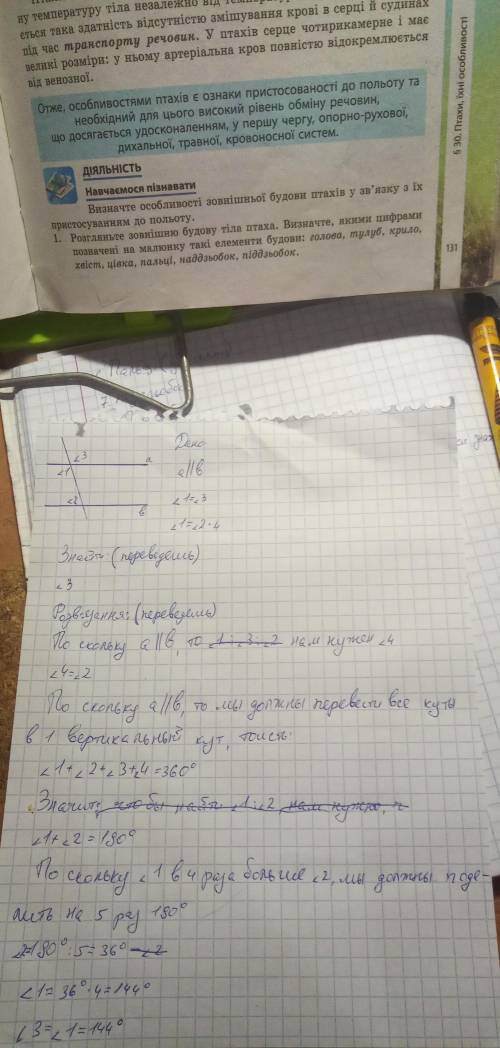 ну температуру тіла незалежно від
ється така здатність відсутністю змішування крові в серці й судинах
під час транспорту речовин. У птахів серце чотирикамерне і має
великі розміри: у ньому артеріальна кров повністю відокремлюється
від венозної.
Отже, особливостями птахів є ознаки пристосованості до польоту та
необхідний для цього високий рівень обміну речовин,
що досягається удосконаленням, у першу чергу, опорно-рухової,
дихальної, травної, кровоносної систем.
ДІЯЛЬНІСТЬ
Навчаємося пізнавати
Визначте особливості зовнішньої будови птахів у зв'язку з їх
пристосуванням до польоту.
1. Розгляньте зовнішню будову тіла птаха. Визначте, якими цифрами
позначені на малюнку такі елементи будови: голова, тулуб, крило,
хвіст, цівка, пальці, наддзьобок, піддзьобок.
§ 30. Птахи, їхні особливості
131
∠3
a
∠1
∠2
в
Дано
a||в
∠1=∠3
∠1=∠2·4
Знайти (переведешь)
∠3
Розв'язання: (переведешь)
По скольку a||в, то ∠1 : ∠3 : ∠2 нам нужен ∠4
∠4=∠2
По скольку a||в, то мы должны перевести все куты
в 1 вертикальный кут, тоисть:
∠1+∠2+∠3+∠4=360°
Значит, что бы найти ∠1 : ∠2, нам нужно,
∠1+∠2=180°
По скольку ∠1 в 4 раза больше ∠2, мы должны поде-
лить на 5 раз 180°
∠2=180°:5=36° ∠2
∠1=36°·4=144°
∠3=∠1=144°